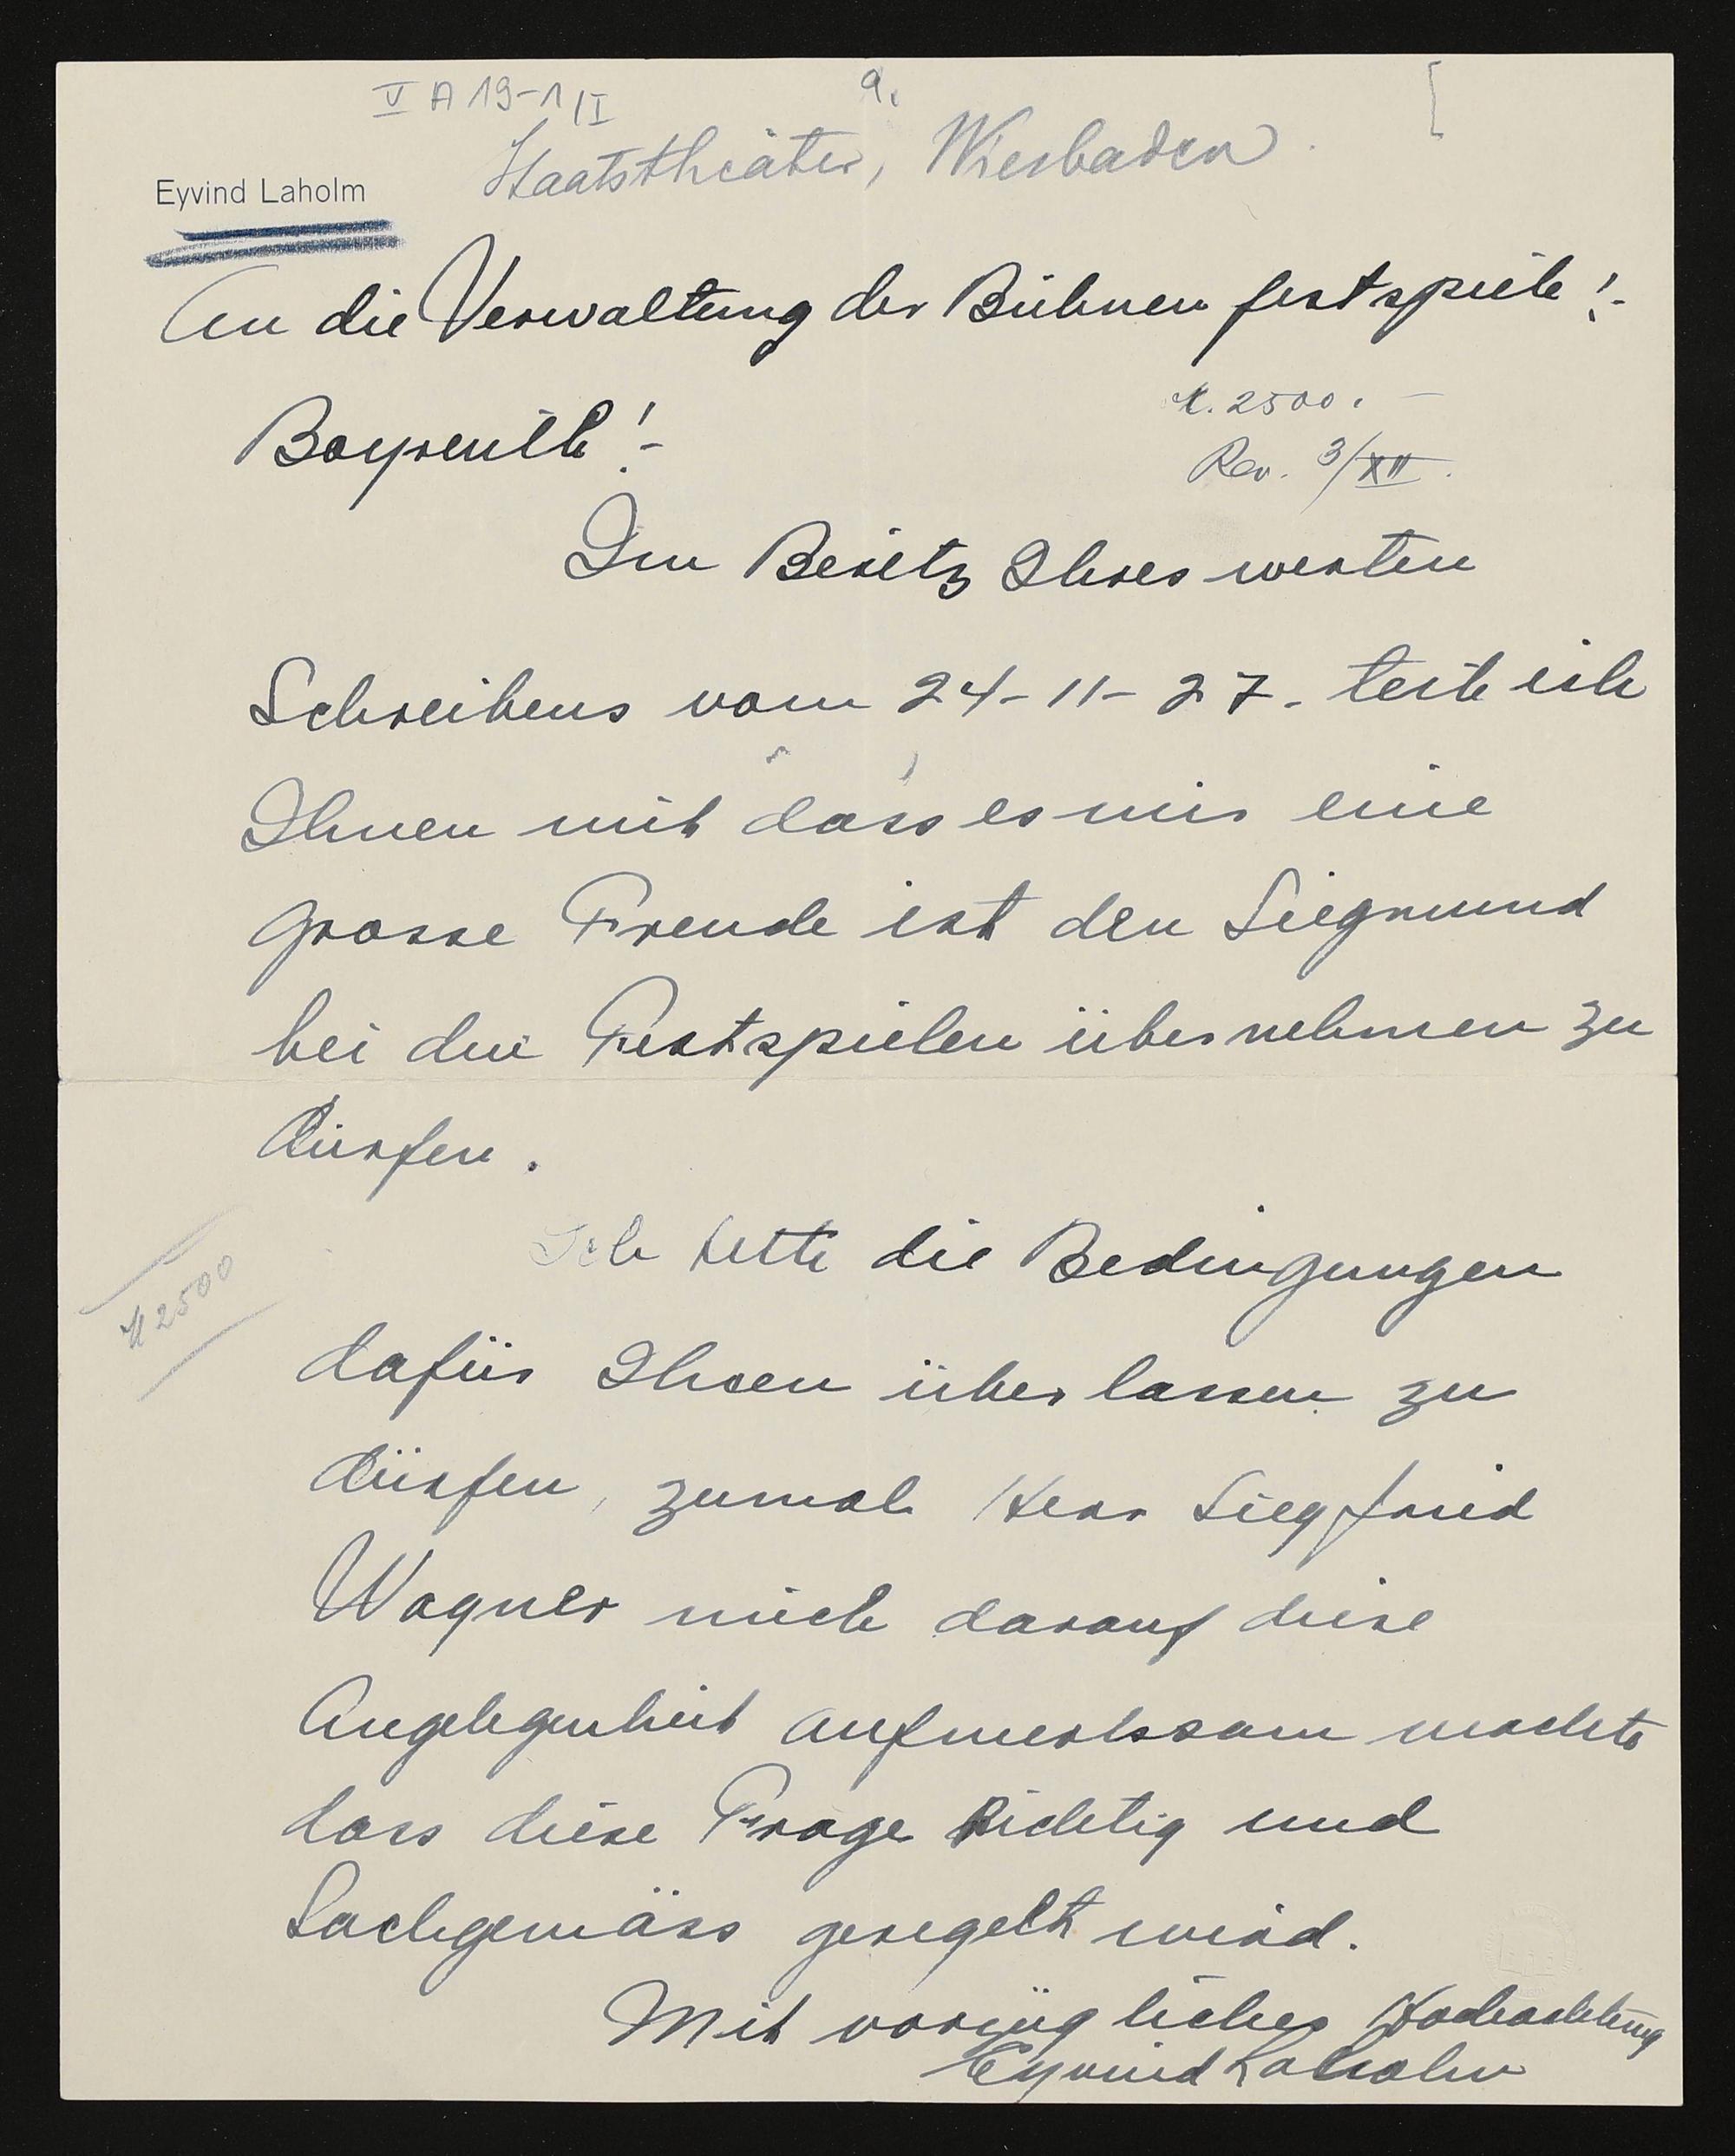 V A 19-1/I
a.
[
Staatstheater, Wiesbaden.
Eyvind Laholm
An die Verwaltung der Bühnen festspiele!-
M. 2500.-
Bayreuth!-
Rev. 3/XII.
Im Besitz Ihres werten
Schreibens vom 24-11-27- teile ich
Ihnen mit dass es mir eine
grosse Freude ist den Siegmund
bei den Festspielen übernehmen zu
dürfen.
Ich bitte die Bedingungen
M 2500
dafür Ihnen überlassen zu
dürfen, zumal Herr Siegfried
Wagner mich darauf diese
Angelegenheit aufmerksam machte
dass diese Frage Richtig und
Sachgemäss geregelt wird.
Mit vorzüglicher Hochachtung
Eyvind Laholm